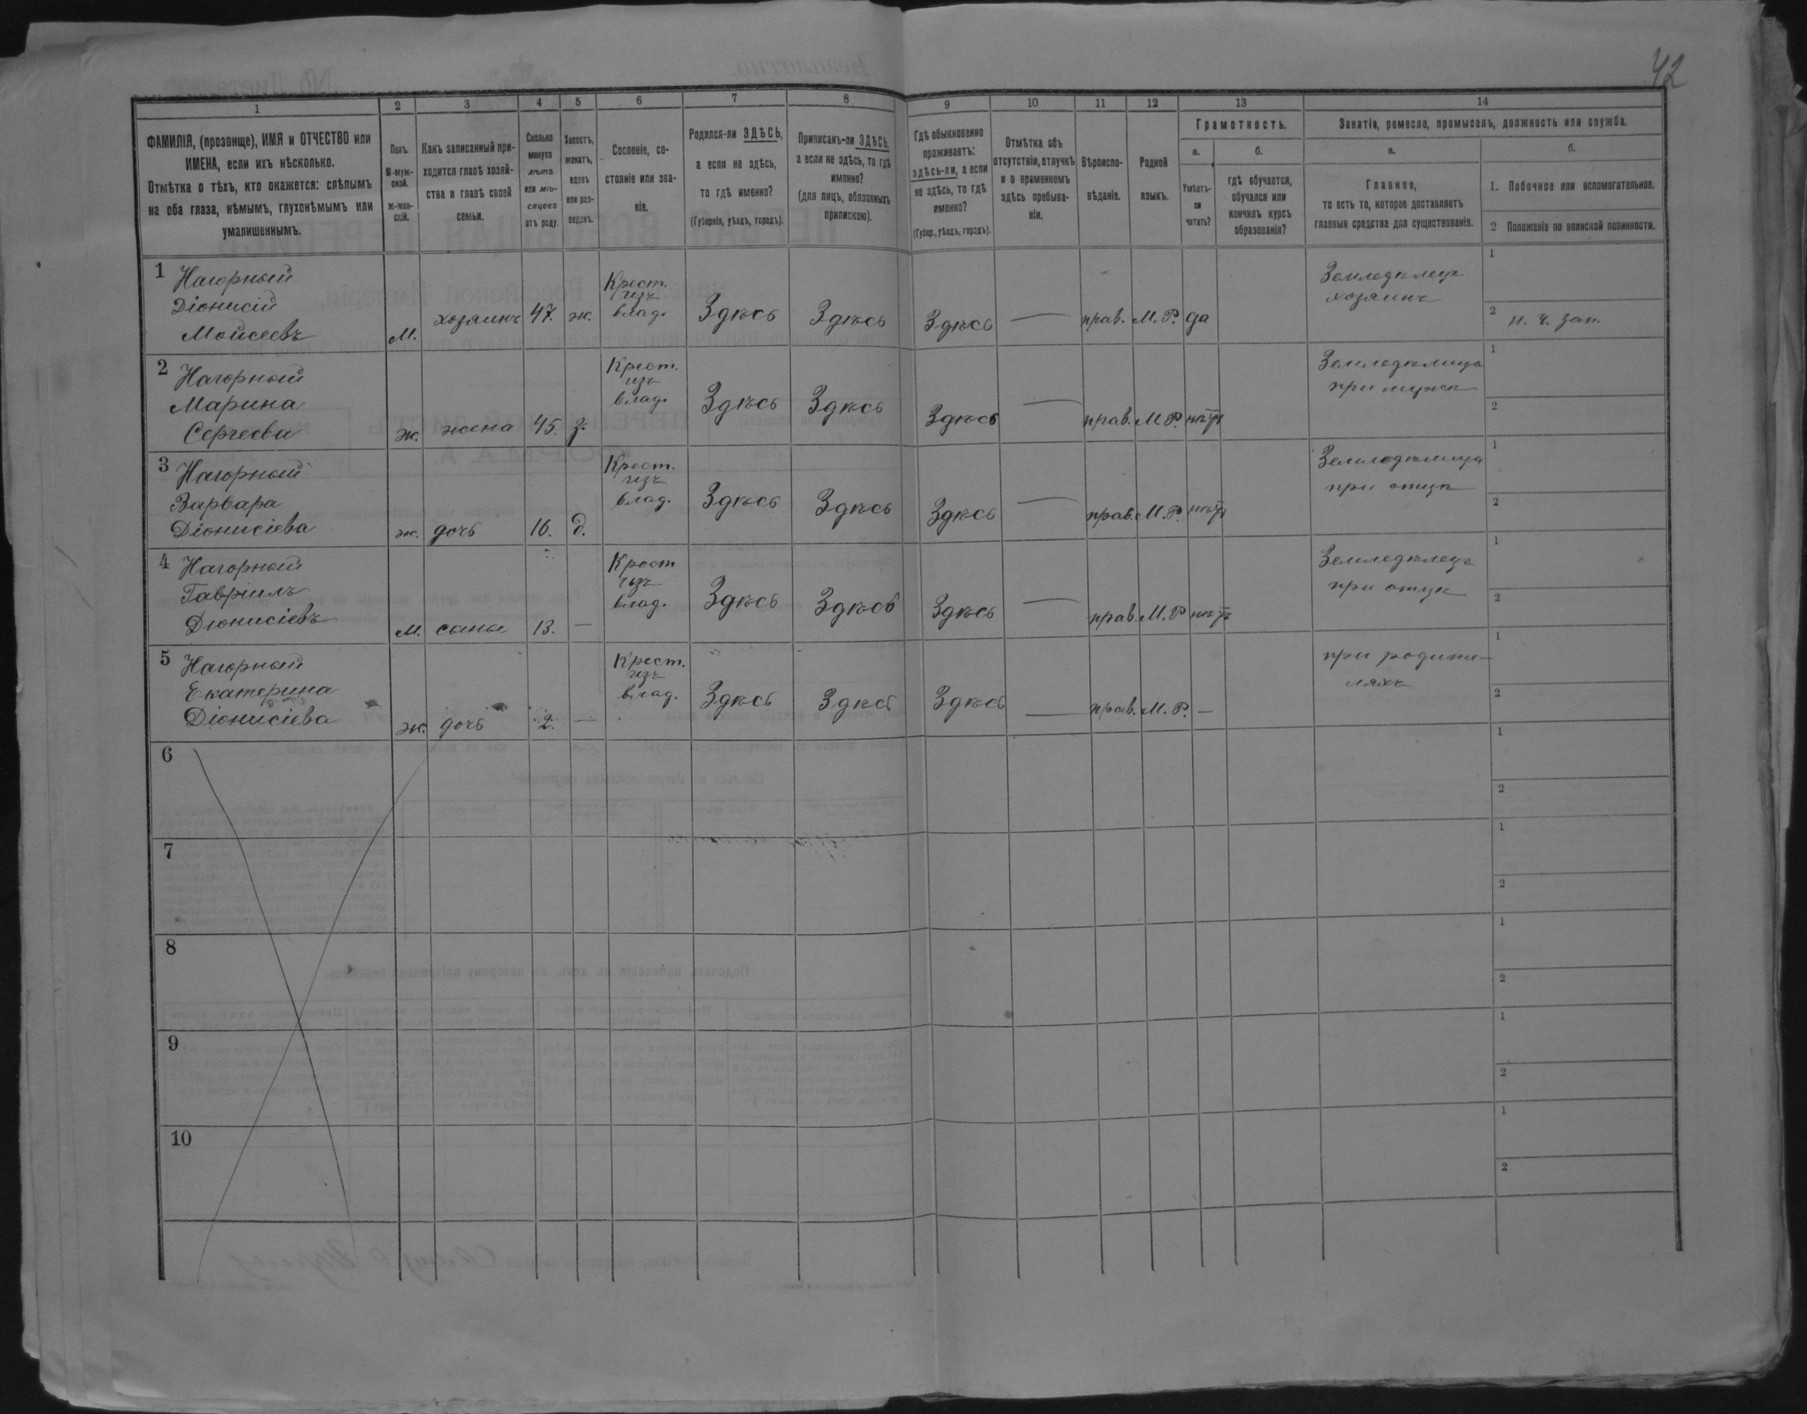 42
1 2 3 4 5 6 7 8 9 10 11 12 13 14
ФАМИЛІЯ, (прозвище), ИМЯ и ОТЧЕСТВО или
ИМЕНА, если ихъ нѣсколько.
Отмѣтка о тѣхъ, кто окажется: слѣпымъ
на оба глаза, нѣмымъ, глухонѣмымъ или
умалишеннымъ.
Полъ.
М-муж-
ской.
ж-жен-
скій.
Какъ записанный при-
ходится главѣ хозяй-
ства и главѣ своей
семьи.
Сколько
минуло
лѣтъ
или мѣ-
сяцевъ
отъ роду.
Холостъ,
женатъ,
вдовъ
или раз-
веденъ.
Сословіе, со-
стояніе или зва-
ніе.
Родился-ли ЗДѢСЬ,
а если не здѣсь,
то гдѣ именно?
(Губернія, уѣздъ, городъ).
Приписанъ-ли ЗДѢСЬ,
а если не здѣсь, то гдѣ
именно?
(для лицъ, обязанныхъ
припискою).
Гдѣ обыкновенно
проживаетъ:
здѣсь-ли, а если
не здѣсь, то гдѣ
именно?
(Губер., уѣздъ, городъ).
Отмѣтка объ
отсутствіи, отлучкѣ
и о временномъ
здѣсь пребыва-
ніи.
Вѣроиспо-
вѣданіе.
Родной
языкъ.
Грамотность.
а.
Умѣетъ-
ли
читать?
б.
гдѣ обучается,
обучался или
кончилъ курсъ
образованія?
Занятіе, ремесло, промыселъ, должность или служба.
а.
Главное,
то есть то, которое доставляетъ
главныя средства для существованія.
б.
1. Побочное или вспомогательное.
2 Положеніе по воинской повинности.
1 Нагорный
Діонисій
Моисеевъ
М.
хозяинъ
47.
ж.
Крест.
изъ
влад.
Здѣсь
Здѣсь
Здѣсь
—
прав.
М. Р.
да
Земледѣлецъ
хозяинъ
1
2 н. ч. зап.
2 Нагорный
Марина
Сергеева
ж.
жена
45.
з.
Крест.
изъ
влад.
Здѣсь
Здѣсь
Здѣсь
—
прав.
М. Р.
нѣтъ
Земледѣлица
при мужѣ
1
2
3 Нагорный
Варвара
Діонисіева
ж.
дочь
16.
д.
Крест.
изъ
влад.
Здѣсь
Здѣсь
Здѣсь
—
прав.
М. Р.
нѣтъ
Земледѣлица
при отцѣ
1
2
4 Нагорный
Гавріилъ
Діонисіевъ
М.
сынъ
13.
—
Крест
изъ
влад.
Здѣсь
Здѣсь
Здѣсь
—
прав.
М. Р
нѣтъ
Земледѣлецъ
при отцѣ
1
2
5 Нагорный
Екатерина
Діонисіева
ж.
дочь
2.
—
Крест.
изъ
влад.
Здѣсь
Здѣсь
Здѣсь
—
прав.
М. Р.
—
при родите-
ляхъ
1
2
6
1
2
7
1
2
8
1
2
9
1
2
10
1
2